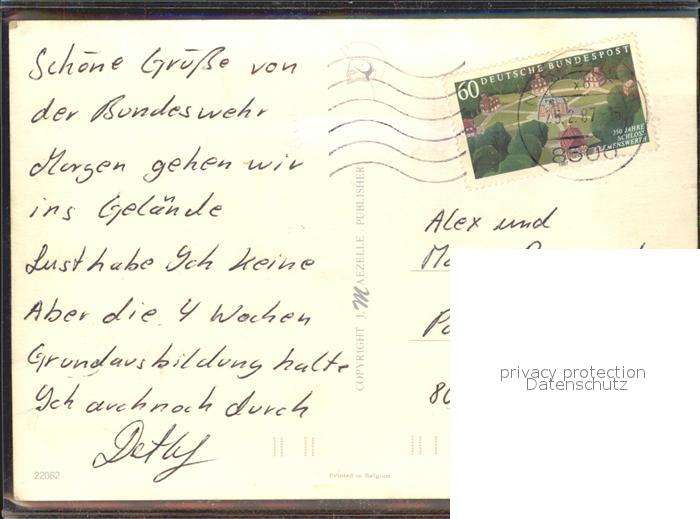 Schöne Grüße von
der Bundeswehr
Morgen gehen wir
ins Gelände
Lust habe Ich keine
Aber die 4 Wochen
Grundausbildung halte
Ich auch noch durch
Detlef
22062
COPYRIGHT J. MAEZELLE PUBLISHER
Printed in Belgium
60 DEUTSCHE BUNDESPOST
350 JAHRE
SCHLOSS
CLEMENSWERTH
Alex und
80
privacy protection
Datenschutz